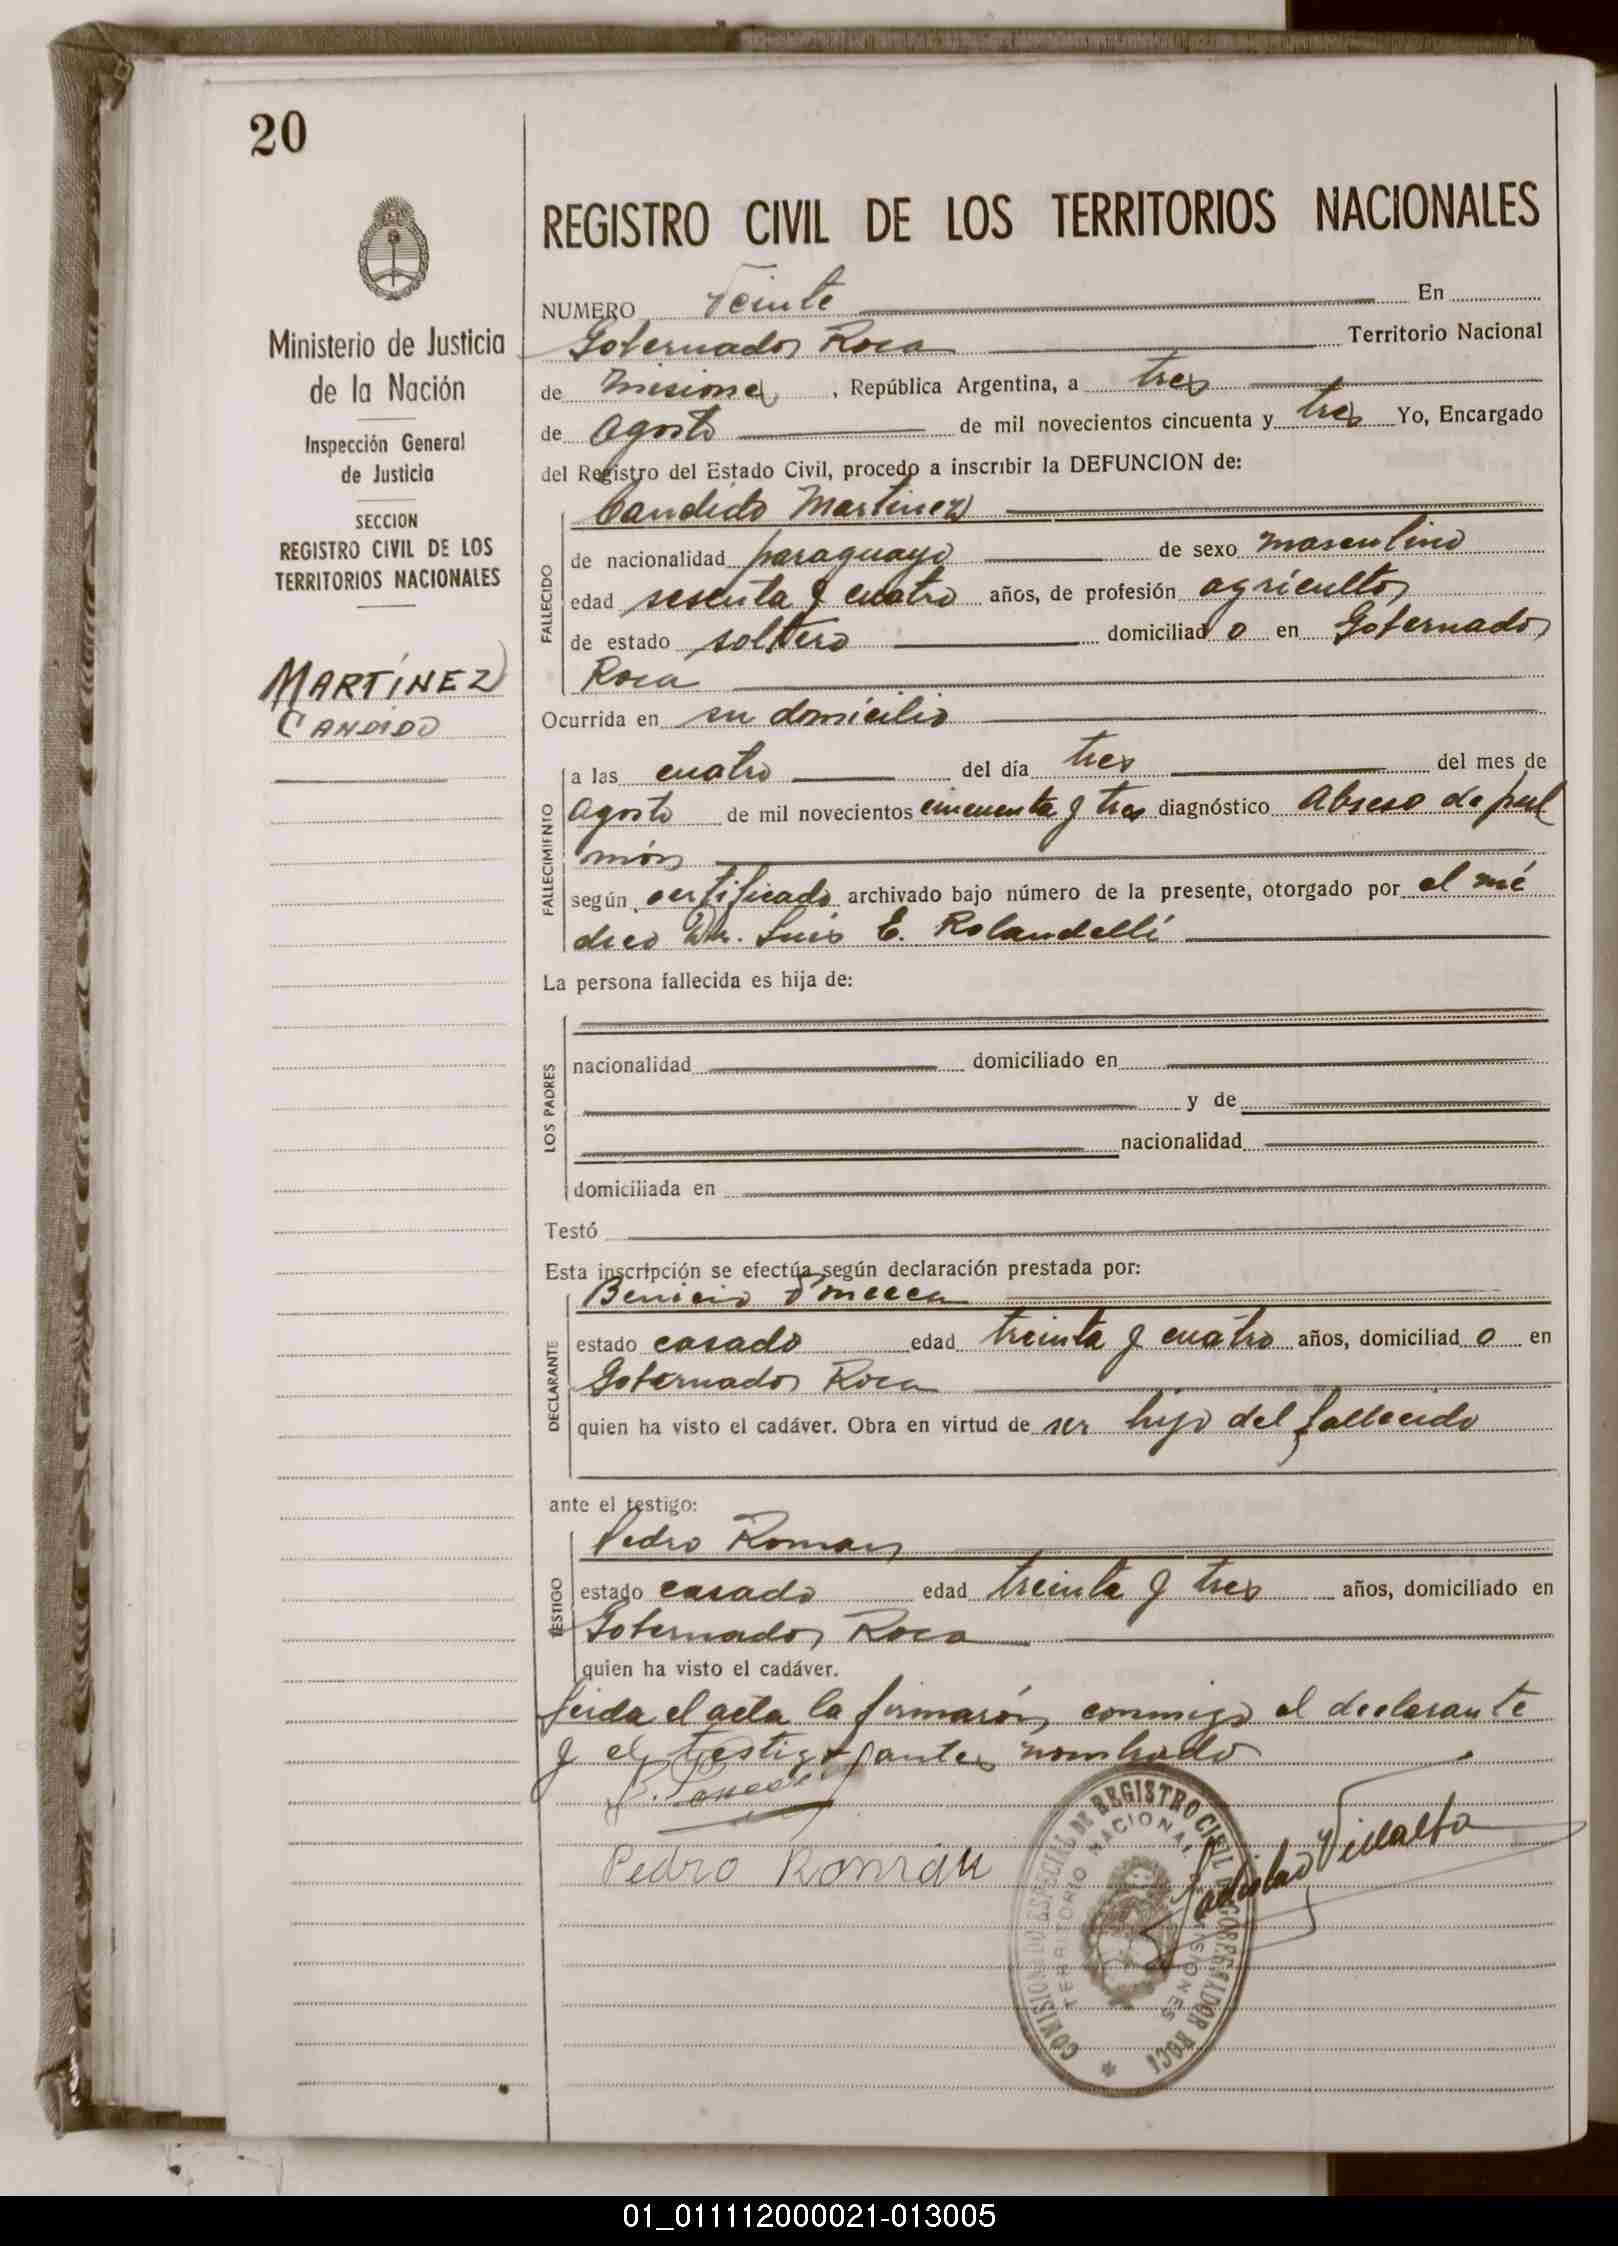 20
Ministerio de Justicia
de la Nación
Inspección General
de Justicia
SECCION
REGISTRO CIVIL DE LOS
TERRITORIOS NACIONALES
MARTÍNEZ
CANDIDO
REGISTRO CIVIL DE LOS TERRITORIOS NACIONALES
NUMERO Veinte En
Gobernador Roca Territorio Nacional
de Misiones, República Argentina, a tres
de Agosto de mil novecientos cincuenta y tres Yo, Encargado
del Registro del Estado Civil, procedo a inscribir la DEFUNCION de:
Candido Martinez
FALLECIDO
de nacionalidad paraguayo de sexo masculino
edad sesenta y cuatro años, de profesión agricultor
de estado soltero domiciliado en Gobernador
Roca
Ocurrida en su domicilio
FALLECIMIENTO
a las cuatro del día tres del mes de
Agosto de mil novecientos cincuenta y tres diagnóstico Abseso de pul
món
según certificado archivado bajo número de la presente, otorgado por el mé
dico Dr. Luis E. Rolandelli
La persona fallecida es hija de:
LOS PADRES
nacionalidad domiciliado en
y de
nacionalidad
domiciliada en
Testó
Esta inscripción se efectúa según declaración prestada por:
Benicio
DECLARANTE
estado casado edad treinta y cuatro años, domiciliado en
Gobernador Roca
quien ha visto el cadáver. Obra en virtud de ser hijo del fallecido
ante el testigo:
Pedro Roman
TESTIGO
estado casado edad treinta y tres años, domiciliado en
Gobernador Roca
quien ha visto el cadáver.
Leida el acta la firmarón conmigo el declarante
y el testigo antes nombrado
Pedro Román
Ladislao Villalba
REGISTRO CIVIL GOBERNADOR ROCA
TERRITORIO NACIONAL MISIONES
01_011112000021-013005